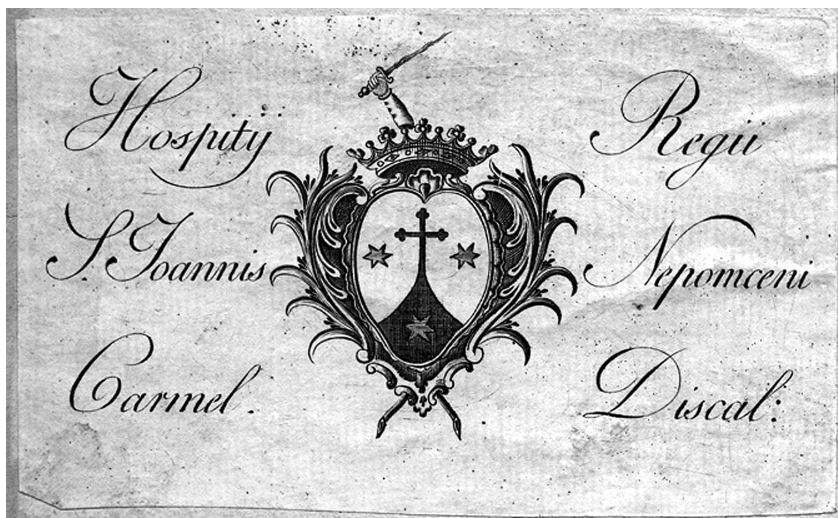 Hospitij Regii
S. Joannis Nepomceni
Carmel. Discal: